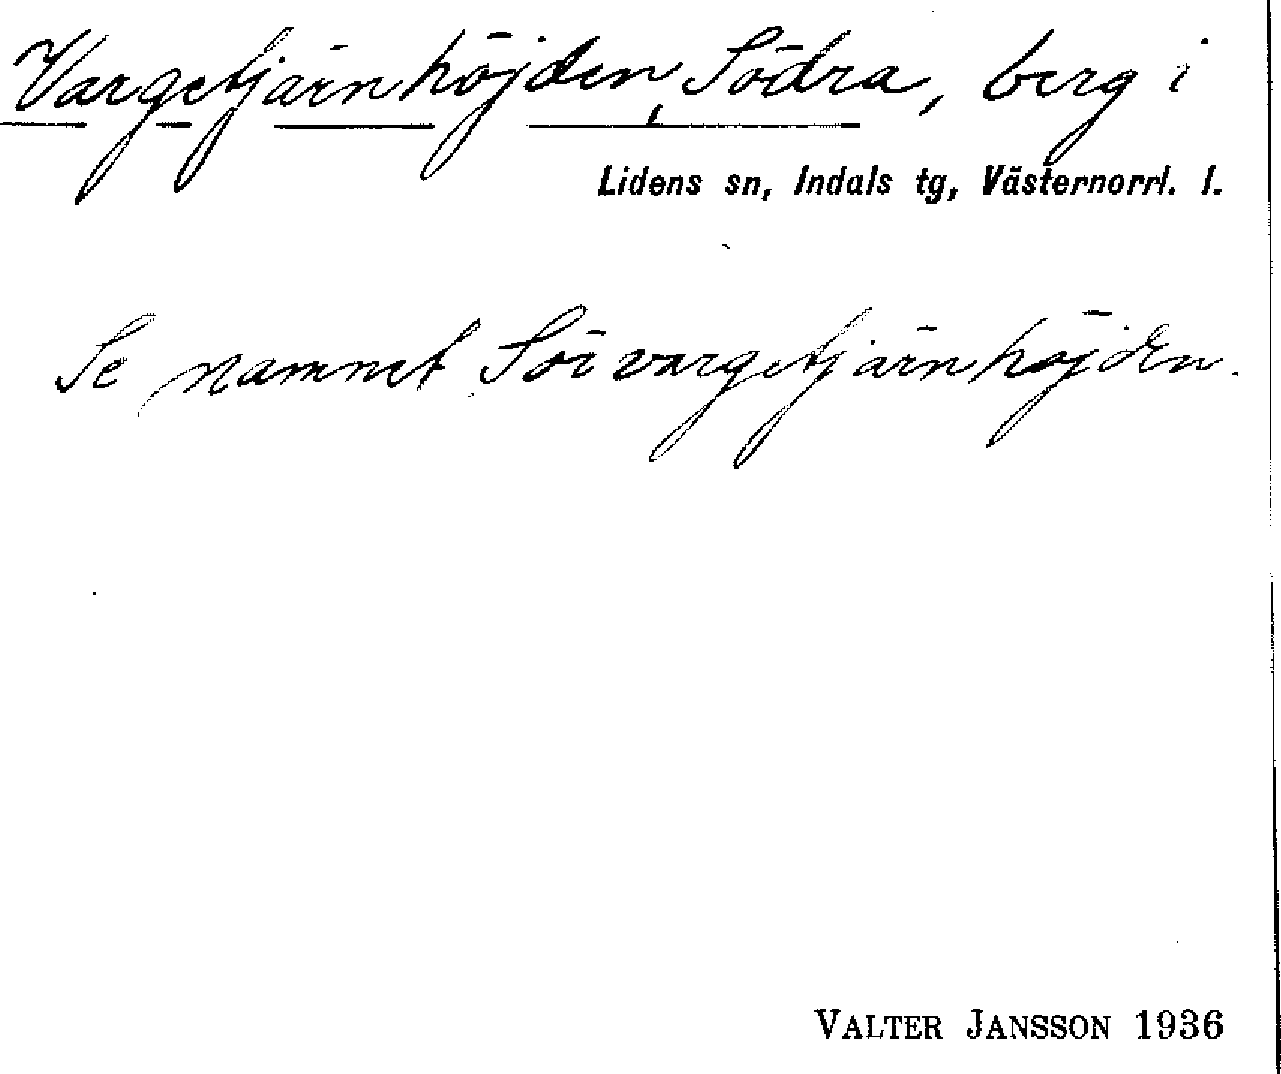 Vargetjärnhöjden, Södra, berg i
Lidens sn, Indals tg, Västernorrl. l.
Se namnet Sörvargetjärnhöjden.
VALTER JANSSON 1936